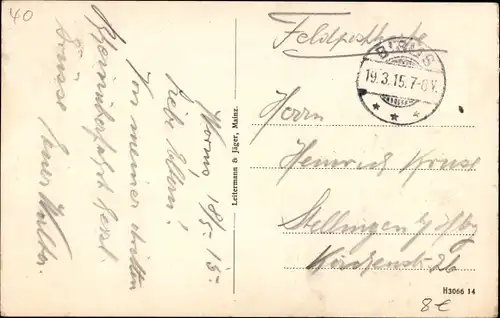 40
Feldpostkarte
19.3.15.7-8V.
Worms, 18/3-15.
Liebe Eltern!
Von meiner dritten
Rheinüberfahrt herzl.
Grüsse Euer Walter.
Leitermann & Jäger, Mainz.
Herrn
Heinrich Kruse
Stellingen b/Hbg
Kirchenstr. 26
H3066 14
8€